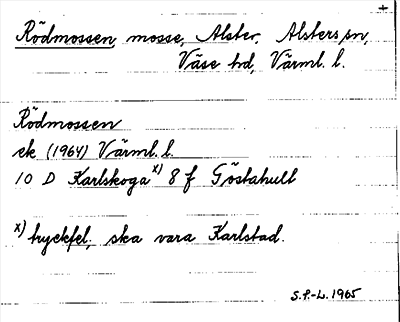 +
Rödmossen mosse, Alster, Alsters sn,
Väse hd, Värml. l.
Rödmossen
ek (1964) Värml. l.
10 D Karlskoga x) 8 f Göstahult
x) tryckfel, ska vara Karlstad.
S.P.-L. 1965